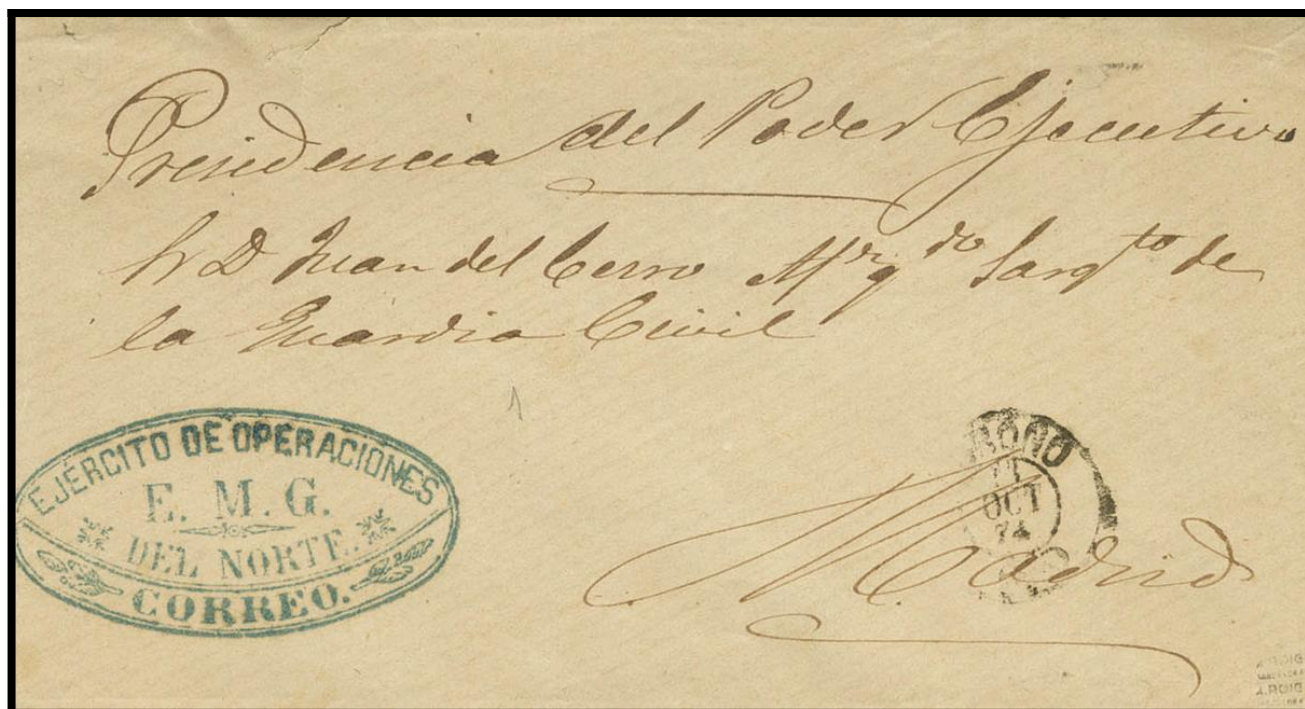 Presidencia del Poder Ejecutivo
Sr D Juan del Cerro
Sargto de
la Guardia Civil
EJÉRCITO DE OPERACIONES
E. M. G.
DEL NORTE.
CORREO.
OCT
74
Madrid
A.ROIG